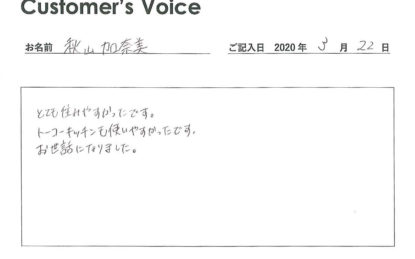 Customer's Voice
お名前 秋山 加奈美 ご記入日 2020年 3月 22日
とても住みやすかったです。
トーコーキッチンも使いやすかったです。
お世話になりました。